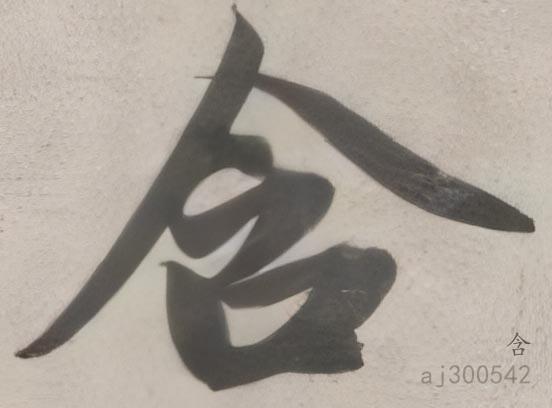 含
含
aj300542